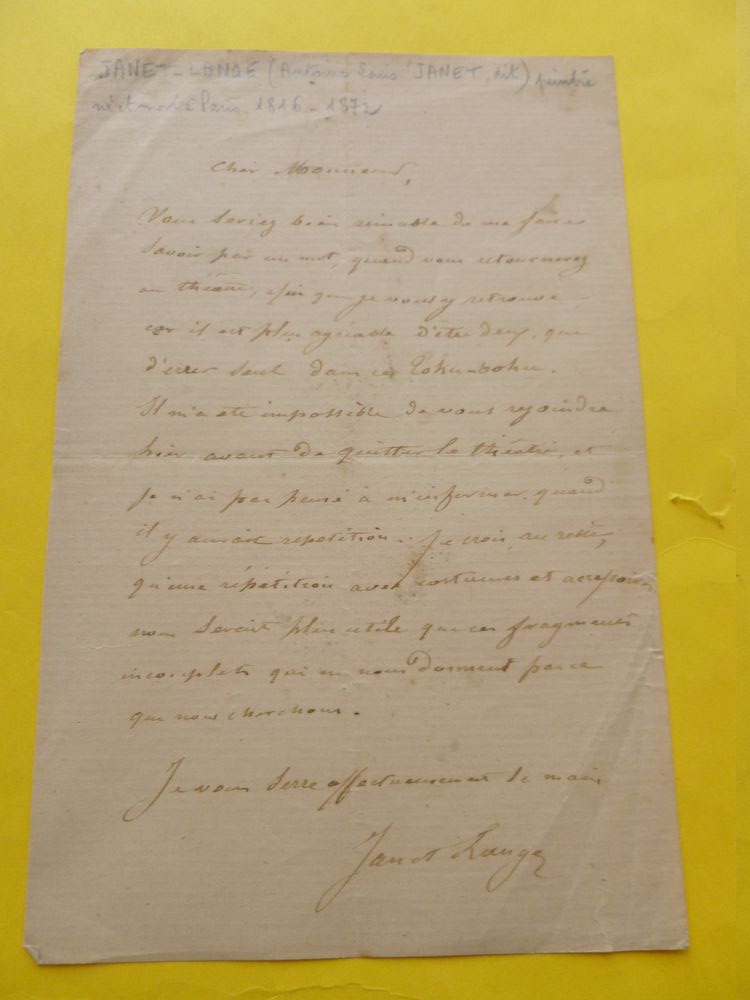 JANET-LANGE (Antoine Louis JANET, dit) peintre
né et mort à Paris 1816-1872
Cher Monsieur,
Vous seriez bien aimable de me faire
savoir par un mot, quand vous retournerez
au théâtre, afin que je vous y retrouve
car il est plus agréable d'être deux, que
d'errer seul dans ce Tohu-bohu.
Il m'a été impossible de vous rejoindre
hier avant de quitter le théâtre, et
je n'ai pas pensé à m'informer, quand
il y aurait répétition. Je crois, au reste,
qu'une répétition avec costumes et accessoires
nous serait plus utile que ces fragments
incomplets qui ne nous donnent pas ce
que nous cherchons.
Je vous serre affectueusement la main
Janet Lange